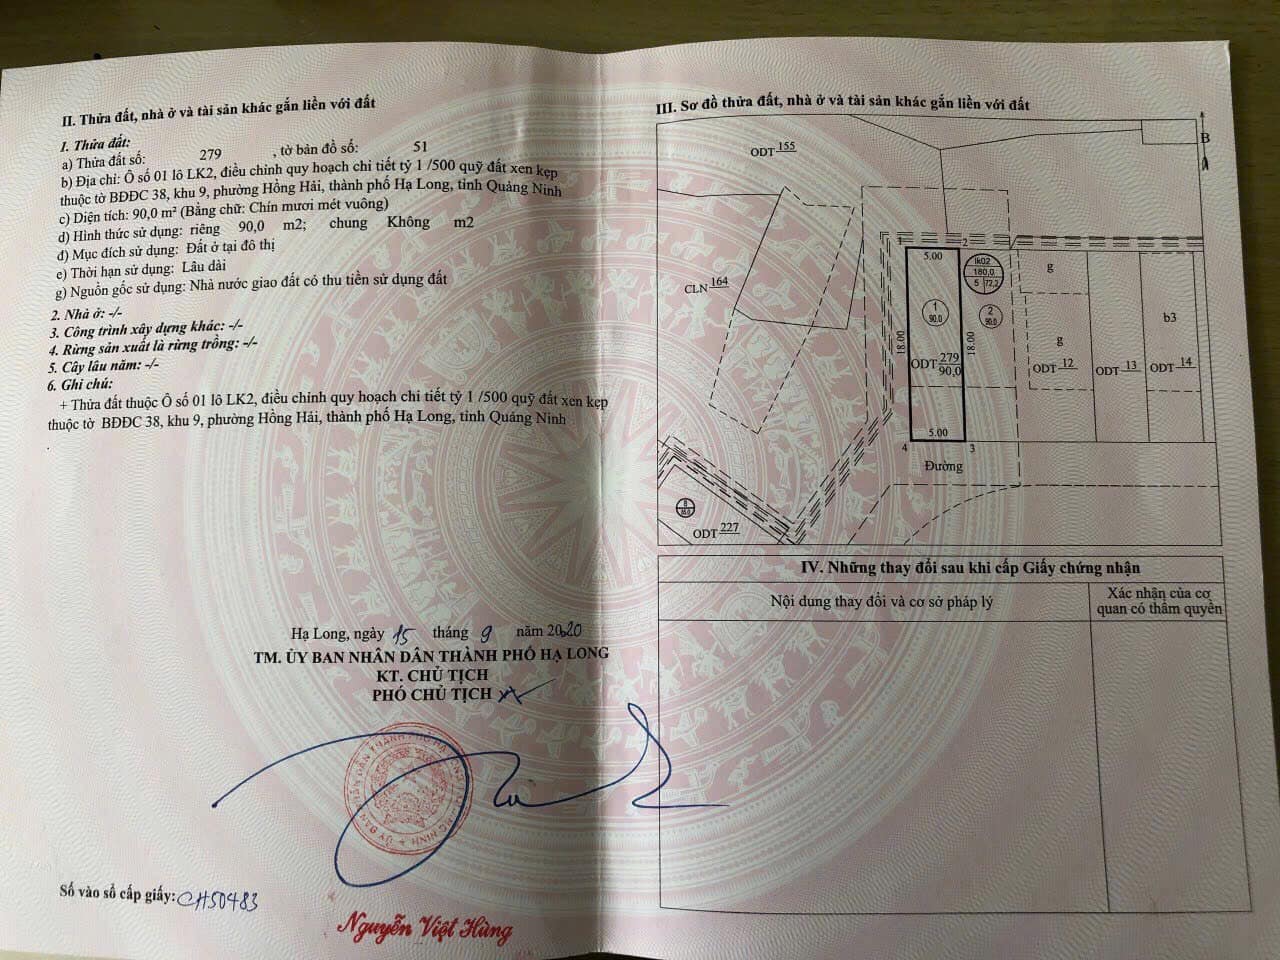 II. Thửa đất, nhà ở và tài sản khác gắn liền với đất
1. Thửa đất:
a) Thửa đất số: 279 , tờ bản đồ số: 51
b) Địa chỉ: Ô số 01 lô LK2, điều chỉnh quy hoạch chi tiết tỷ 1 /500 quỹ đất xen kẹp
thuộc tờ BĐĐC 38, khu 9, phường Hồng Hải, thành phố Hạ Long, tỉnh Quảng Ninh
c) Diện tích: 90,0 m² (Bằng chữ: Chín mươi mét vuông)
d) Hình thức sử dụng: riêng 90,0 m2; chung Không m2
đ) Mục đích sử dụng: Đất ở tại đô thị
e) Thời hạn sử dụng: Lâu dài
g) Nguồn gốc sử dụng: Nhà nước giao đất có thu tiền sử dụng đất
2. Nhà ở: -/-
3. Công trình xây dựng khác: -/-
4. Rừng sản xuất là rừng trồng: -/-
5. Cây lâu năm: -/-
6. Ghi chú:
+ Thửa đất thuộc Ô số 01 lô LK2, điều chỉnh quy hoạch chi tiết tỷ 1 /500 quỹ đất xen kẹp
thuộc tờ BĐĐC 38, khu 9, phường Hồng Hải, thành phố Hạ Long, tỉnh Quảng Ninh
Hạ Long, ngày 15 tháng 9 năm 2020
TM. ỦY BAN NHÂN DÂN THÀNH PHỐ HẠ LONG
KT. CHỦ TỊCH
PHÓ CHỦ TỊCH
Số vào sổ cấp giấy: CH50483
Nguyễn Việt Hùng
III. Sơ đồ thửa đất, nhà ở và tài sản khác gắn liền với đất
B
ODT 155
1 2
5.00
lk02
180,0
5 72,2
g
CLN 164
1
90.0
2
90.0
b3
18.00
18.00
g
ODT 279
90,0
ODT 12
ODT 13
ODT 14
5.00
4 3
Đường
ODT 227
IV. Những thay đổi sau khi cấp Giấy chứng nhận
Nội dung thay đổi và cơ sở pháp lý
Xác nhận của cơ
quan có thẩm quyền